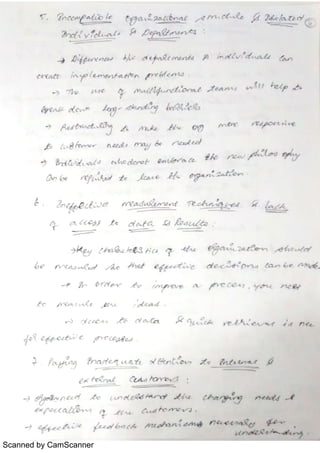 5. Incompatible organizational structure & Isolated
Individuals & Departments :
→ Differences b/w departments & individuals can
create implementation problems.
→ The use of multifunctional teams will help to
break down long-standing barriers
→ Restructuring to make the org more responsive
to customer needs may be needed
→ Individuals who do not embrace the new philosophy
can be required to leave the organization.
6. Ineffective measurement techniques & lack
of access to data & Results:
→ Key characteristics of the organization should
be measured so that effective decisions can be made.
→ In order to improve a process, you need
to measure
→ Access to data & quick retrieval is
for effective processes.
7. Paying Inadequate attention to Internal &
external Customers :
→ need to understand the changing needs &
expectations of the customers.
→ effective feedback mechanisms necessary for
understanding.
Scanned by CamScanner